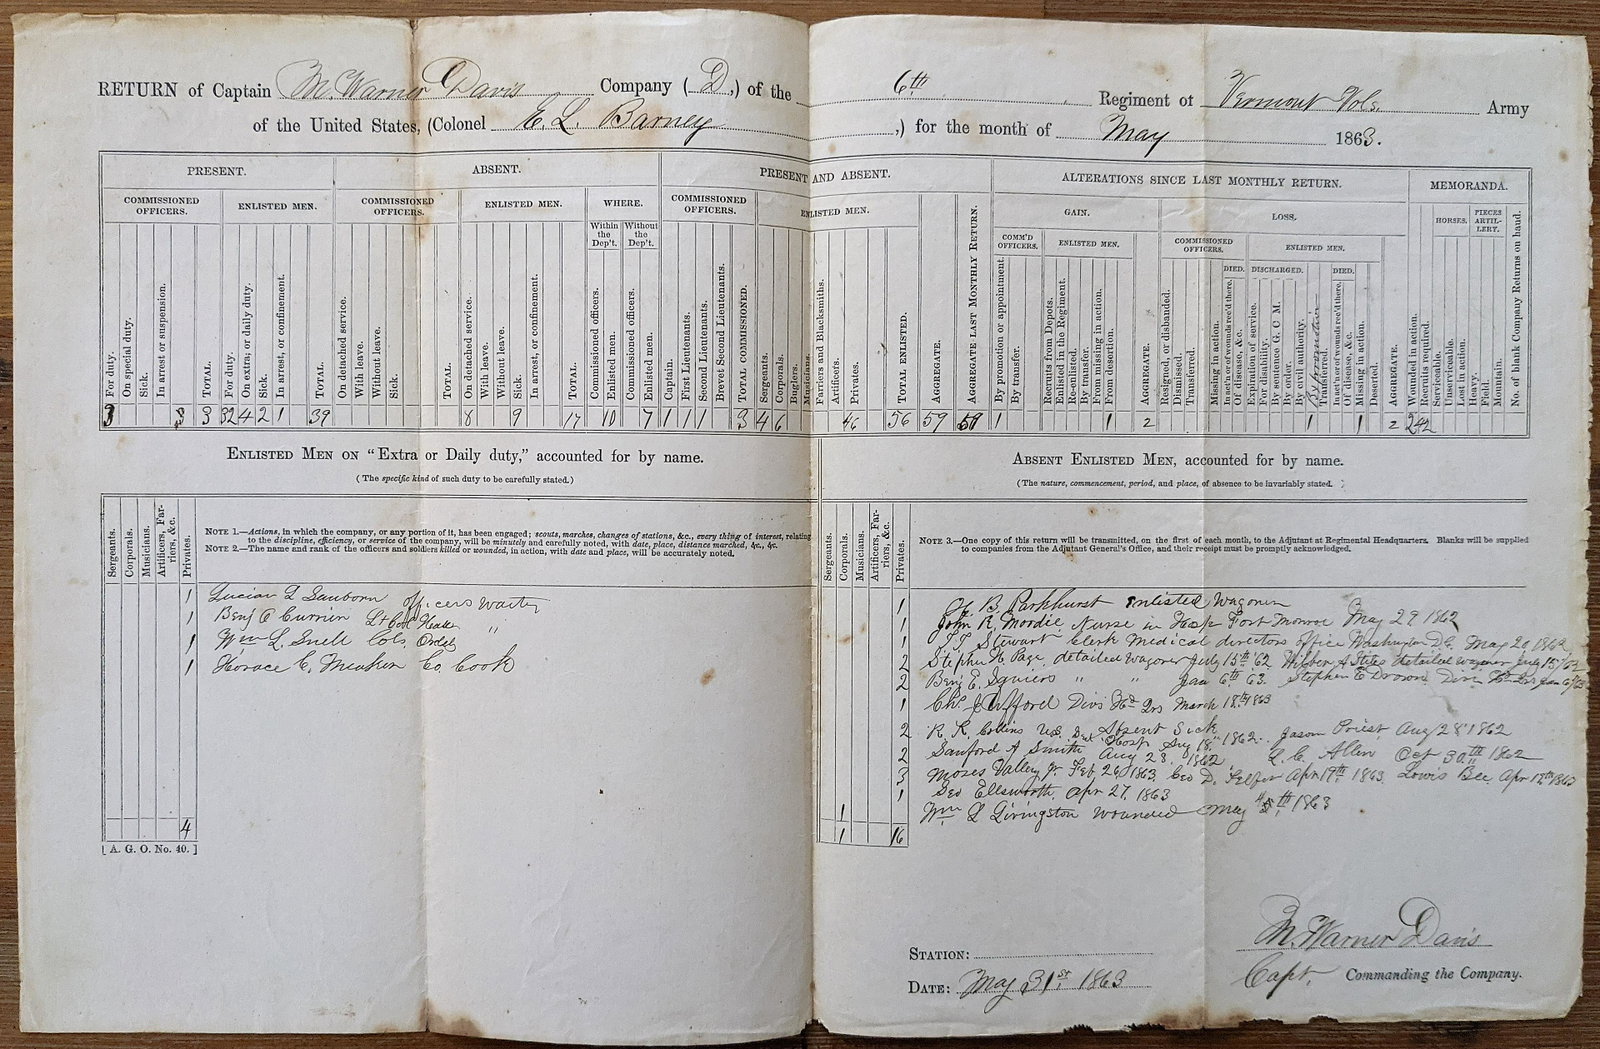 RETURN of Captain M. Warner Davis Company (D,) of the 6th Regiment of Vermont Vols. Army
of the United States, (Colonel E. L. Barney ,) for the month of May 1863.
PRESENT. ABSENT. PRESENT AND ABSENT. ALTERATIONS SINCE LAST MONTHLY RETURN. MEMORANDA.
COMMISSIONED OFFICERS. ENLISTED MEN. COMMISSIONED OFFICERS. ENLISTED MEN. WHERE. COMMISSIONED OFFICERS. ENLISTED MEN. GAIN. LOSS. HORSES. PIECES ARTILLERY.
Within the Dep't. Without the Dep't. COMM'D OFFICERS. ENLISTED MEN. COMMISSIONED OFFICERS. ENLISTED MEN.
DIED. DISCHARGED. DIED.
For duty.
On special duty.
Sick.
In arrest or suspension.
TOTAL.
For duty.
On extra or daily duty.
Sick.
In arrest, or confinement.
TOTAL.
On detached service.
With leave.
Without leave.
TOTAL.
On detached service.
With leave.
Without leave.
Sick.
In arrest, or confinement.
TOTAL.
Commissioned officers.
Enlisted men.
Commissioned officers.
Enlisted men.
Captain.
First Lieutenants.
Second Lieutenants.
Brevet Second Lieutenants.
TOTAL COMMISSIONED.
Sergeants.
Corporals.
Buglers.
Musicians.
Farriers and Blacksmiths.
Artificers.
Privates.
TOTAL ENLISTED.
AGGREGATE.
AGGREGATE LAST MONTHLY RETURN.
By promotion or appointment.
By transfer.
Recruits from Depots.
Enlisted in the Regiment.
Re-enlisted.
By transfer.
From missing in action.
From desertion.
AGGREGATE.
Resigned, or disbanded.
Dismissed.
Transferred.
Missing in action.
In act'n or of wounds rec'd there.
Of disease, &c.
Expiration of service.
For disability.
By sentence G. C. M.
By order.
By civil authority.
By promotion
Transferred.
In act'n or of wounds rec'd there.
Of disease, &c.
Missing in action.
Deserted.
AGGREGATE.
Wounded in action.
Recruits required.
Serviceable.
Unserviceable.
Lost in action.
Heavy.
Field.
Mountain.
No. of blank Company Returns on hand.
3 3 3 32 4 2 1 39 8 9 17 10 7 1 1 1 3 4 6 46 56 59 58 1 1 2 1 1 2 2 42
ENLISTED MEN ON “Extra or Daily duty,” accounted for by name.
(The specific kind of such duty to be carefully stated.)
Sergeants.
Corporals.
Musicians.
Artificers, Farriers, &c.
Privates.
NOTE 1.—Actions, in which the company, or any portion of it, has been engaged; scouts, marches, changes of stations, &c., every thing of interest, relating
to the discipline, efficiency, or service of the company, will be minutely and carefully noted, with date, place, distance marched, &c., &c.
NOTE 2.—The name and rank of the officers and soldiers killed or wounded, in action, with date and place, will be accurately noted.
1 Lucian Sanborn officers waiter
1 Benj C Currier Lt Col "
1 Wm L. Snell Cols. Ordely "
1 Horace C. Meaker Co. Cook
4
[A. G. O. No. 40.]
ABSENT ENLISTED MEN, accounted for by name.
(The nature, commencement, period, and place, of absence to be invariably stated.
Sergeants.
Corporals.
Musicians.
Artificers, Farriers, &c.
Privates.
NOTE 3.—One copy of this return will be transmitted, on the first of each month, to the Adjutant at Regimental Headquarters. Blanks will be supplied
to companies from the Adjutant General's Office, and their receipt must be promptly acknowledged.
1 B. Parkhurst enlisted Wagoner
1 John R. Mordie Nurse in Hosp Fort Monroe May 29 1862
1 Stewart Clerk Medical directors office Washington D.C. May 20, 1862
2 Stephen H. Page detailed wagoner July 15th 62 Wilber A Stiles detailed wagoner July 15/62
2 Benj E. Squiers " " Jan 6th 63. Stephen E Drown Divn Hd Qrs Jan 6/63
1 Chs. Clifford Divs Hd Qrs March 18th 1863
Absent Sick
2 R. K. Collins Hosp Aug 18" 1862. Jason Priest Aug 28" 1862
2 Sanford A Smith Aug 28, 1862 Allen Oct 30th 1862
3 Moses Valley Jr. Feb 26/1863 Geo D. Apr 17th 1863 Lewis Bee Apr 12th 1863
1 Geo Ellsworth Apr 27, 1863
1 Wm L Livingston wounded May 4th 1863
1 16
STATION:
DATE: May 31st, 1863
M. Warner Davis
Capt. Commanding the Company.